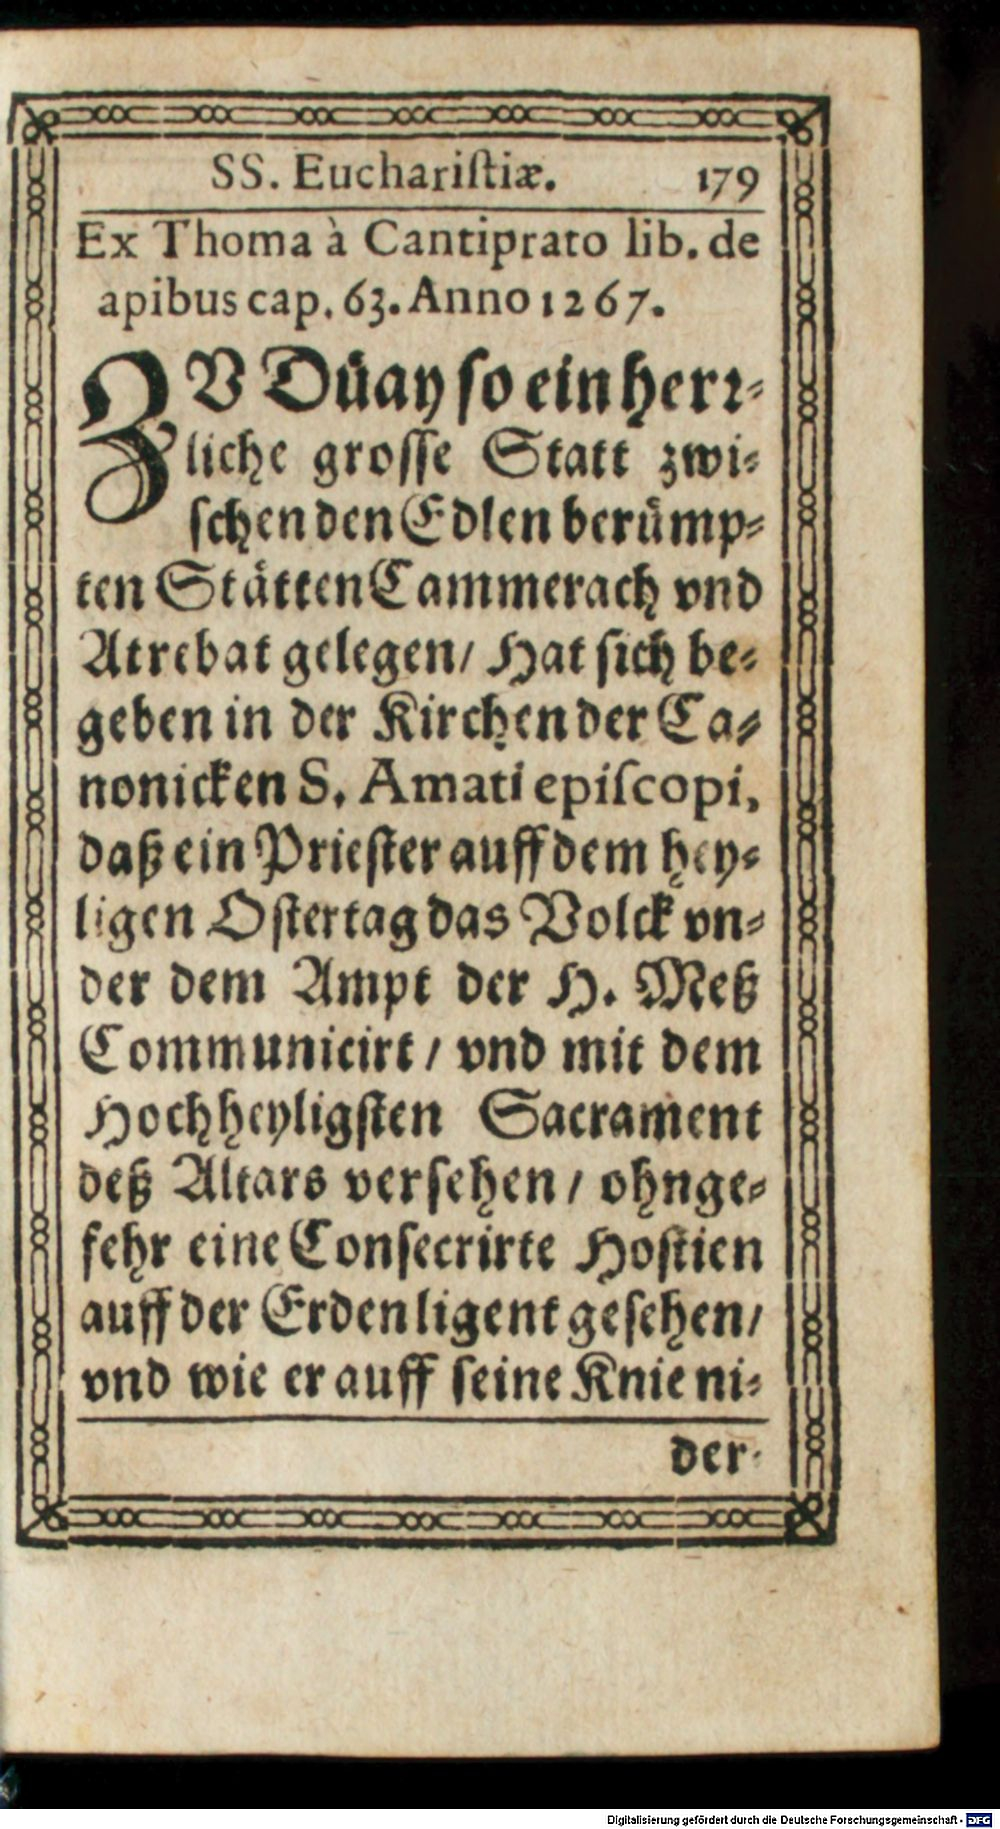 SS. Euchariſtiæ. 179
Ex Thoma à Cantiprato lib. de
apibus cap. 63. Anno 1267.
ZV Düay ſo ein herꝛ⸗
liche groſſe Statt zwi⸗
ſchen den Edlen berümp⸗
ten Stätten Cammerach vnd
Atrebat gelegen/ Hat ſich be⸗
geben in der Kirchen der Ca⸗
nonicken S. Amati epiſcopi,
daß ein Prieſter auff dem hey⸗
ligen Oſtertag das Volck vn⸗
der dem Ampt der H. Meß
Communicirt / vnd mit dem
Hochheyligſten Sacrament
deß Altars verſehen / ohnge⸗
fehr eine Conſecrirte Hoſtien
auff der Erden ligent geſehen/
vnd wie er auff ſeine Knie ni⸗
der⸗
Digitalisierung gefördert durch die Deutsche Forschungsgemeinschaft - DFG